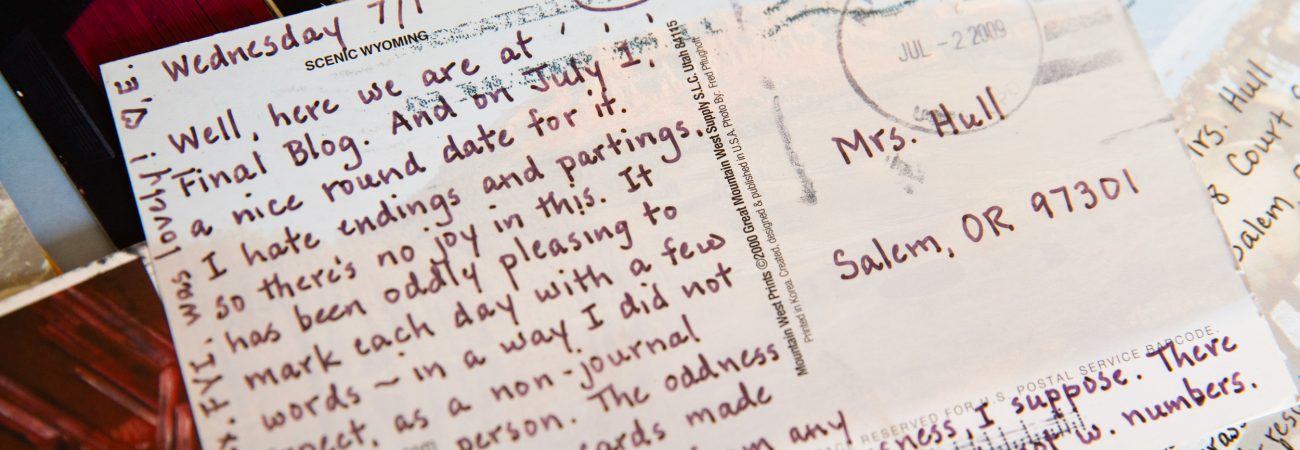 Wednesday 7/1
SCENIC WYOMING
Well, here we are at
Final Blog. And on July 1,
a nice round date for it.
I hate endings and partings,
so there's no joy in this. It
has been oddly pleasing to
mark each day with a few
words ~ in a way I did not
as a non-journal
person. The oddness
cards made
any
ness, I suppose. There
w. numbers.
FYI. was lovely!
Mountain West Prints ©2000 Great Mountain West Supply S.L.C. Utah 84115
Printed in Korea. Created, designed & published in U.S.A. Photo By: Fred Pflughoft
JUL - 2 2009
Mrs. Hull
Salem, OR 97301
RESERVED FOR U.S. POSTAL SERVICE BARCODE.
Mrs. Hull
Court
Salem,